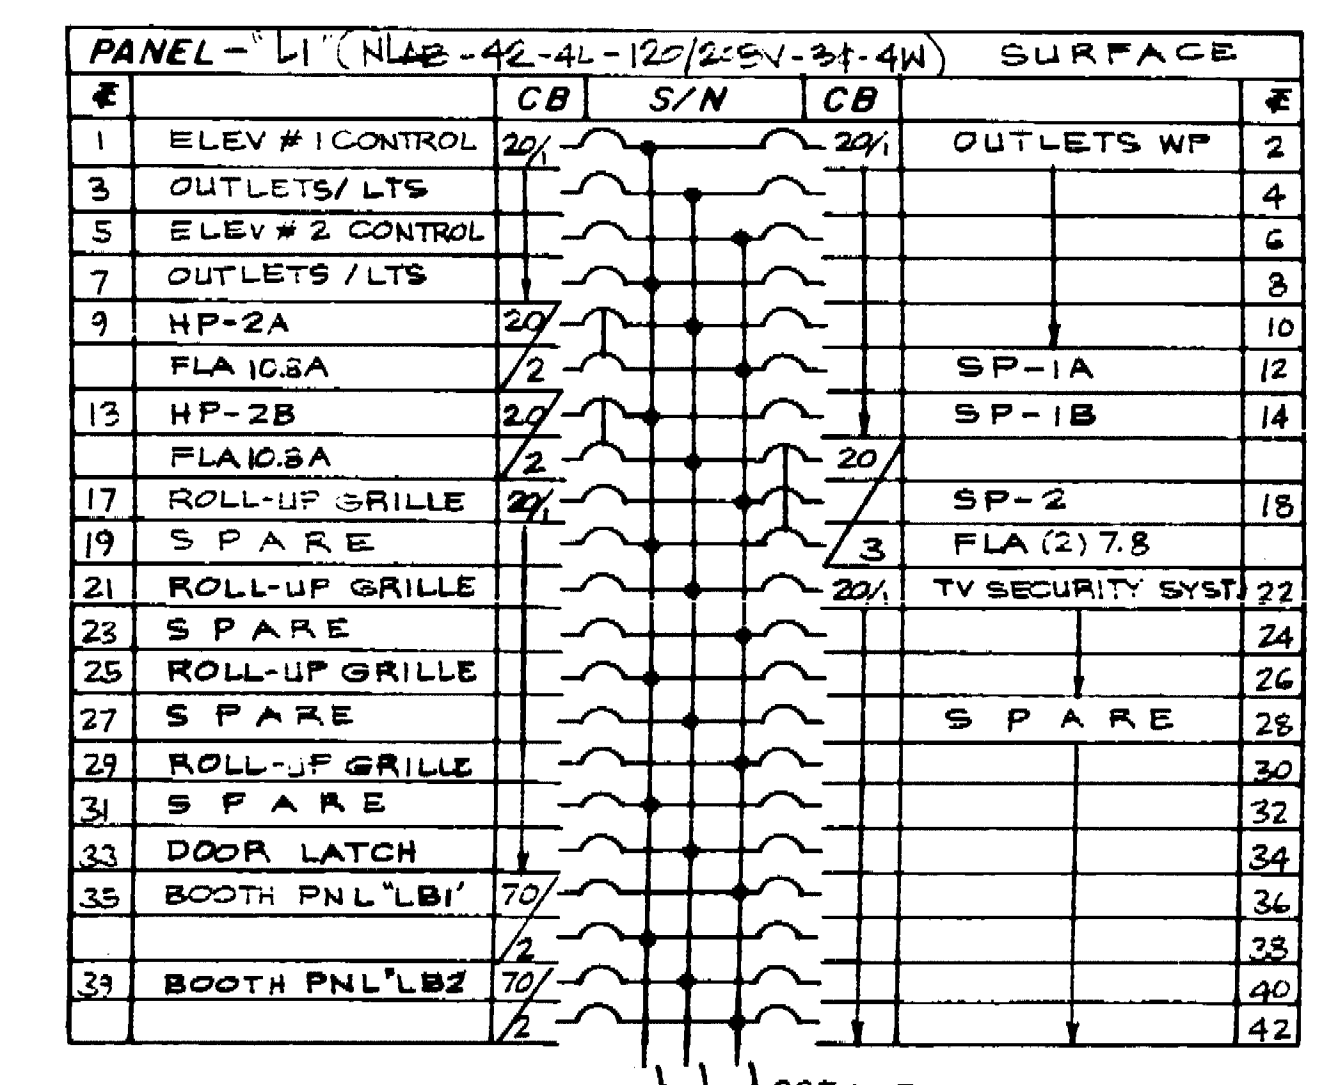 PANEL-"L1" (NLAB-42-4L-120/208V-3ϕ-4W) SURFACE
CB S/N CB
1 ELEV # 1 CONTROL 20/1 20/1 OUTLETS WP 2
3 OUTLETS/ LTS 4
5 ELEV # 2 CONTROL 6
7 OUTLETS / LTS 8
9 HP-2A 20/ 10
FLA 10.8A 2 SP-1A 12
13 HP-2B 20/ SP-1B 14
FLA 10.8A 2 20
17 ROLL-UP GRILLE 20/1 SP-2 18
19 SPARE 3 FLA (2) 7.8
21 ROLL-UP GRILLE 20/1 TV SECURITY SYST. 22
23 SPARE 24
25 ROLL-UP GRILLE 26
27 SPARE SPARE 28
29 ROLL-UP GRILLE 30
31 SPARE 32
33 DOOR LATCH 34
35 BOOTH PNL "LB1' 70/ 36
2 38
39 BOOTH PNL "LB2 70/ 40
2 42